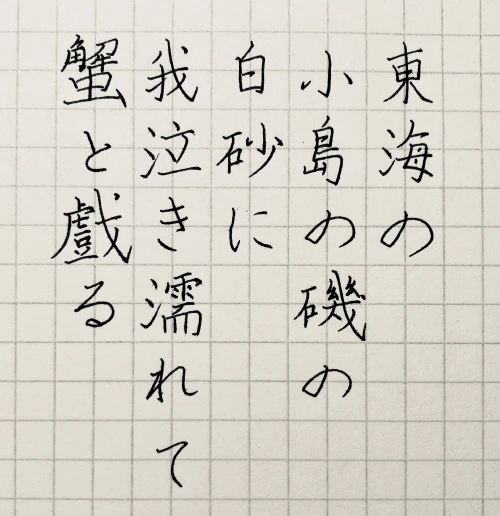 東海の
小島の磯の
白砂に
我泣き濡れて
蟹と戯る